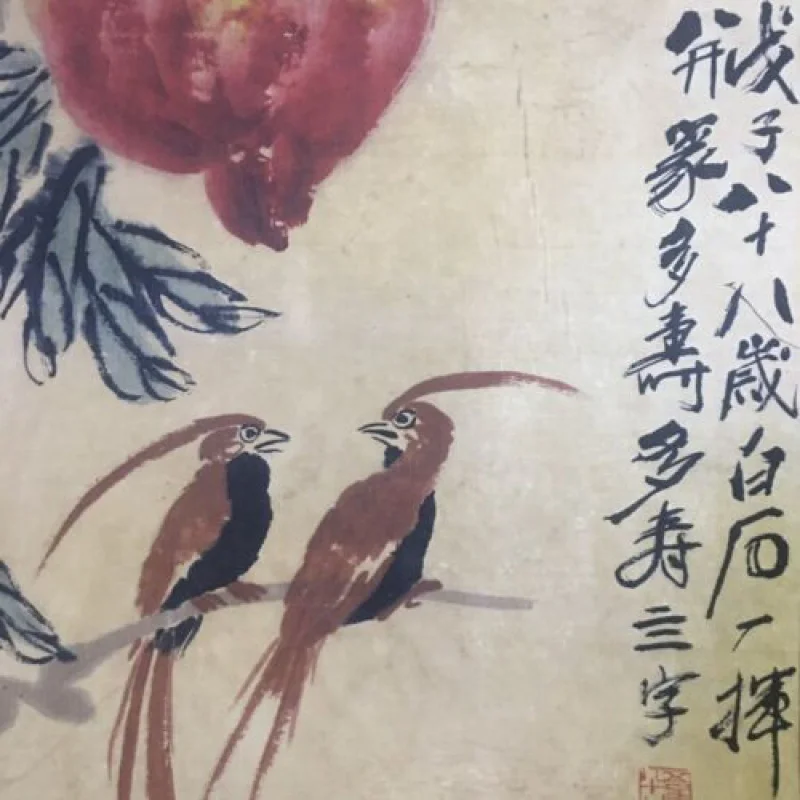 戊子八十八歲白石一揮
并篆多壽多寿三字